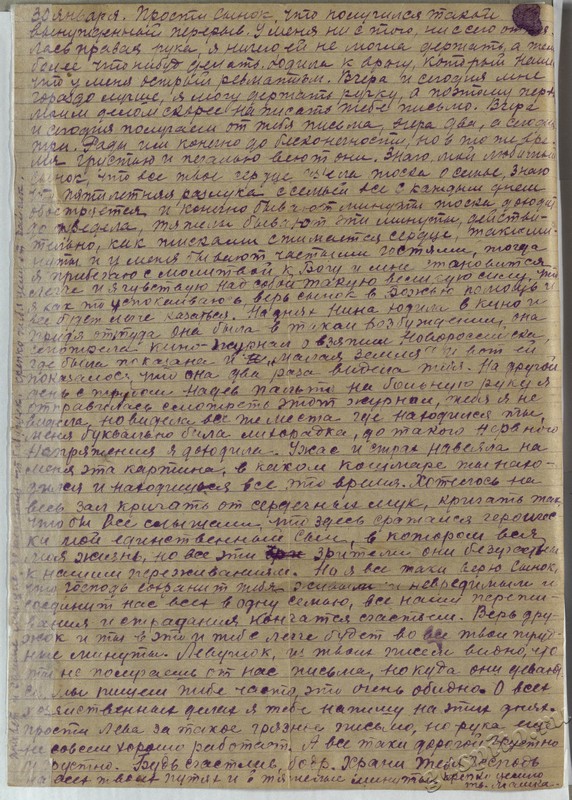 30 января. Прости сынок, что получился такой
вынужденный перерыв. У меня ни с того, ни с сего
правая рука, я ничего ей не могла держать, а тем
более что нибудь делать, ходила к врачу, который нашел
что у меня острый ревматизм. Вчера и сегодня мне
гораздо лучше, я могу держать ручку, а поэтому
делом скорее написать тебе письмо. Вчера
и сегодня получаем от тебя письма, вчера два, а сегодня
три. Рады им конечно до бесконечности, но в то же вре-
мя грустью и печалью веют они. Знаю мой любимый
сынок, что все твое сердце тоска о семье, знаю
что летняя разлука с семьей все с каждым днем
и конечно бывают минуты тоска доходит
до предела, тяжелы бывают эти минуты, действи-
тельно, как тисками сжимается сердце, такие ми-
нуты и у меня бывают частыми гостями, тогда
я прибегаю с молитвой к Богу и мне становится
легче и я чувствую над собой такую великую силу, что
я как то успокаиваюсь верь сынок в Божью помощь и
все будет легче казаться. На днях Нина ходила в кино и
придя оттуда она была в таком возбуждении, она
смотрела кино-журнал о взятии Новороссийска
где была показана и "малая земля" и вот ей
показалось, что она два раза видела тебя. На другой
день с трудом надев пальто на больную руку я
отправилась смотреть этот журнал, тебя я не
видела, но видела все же места где находился ты,
меня буквально била лихорадка, до такого нервного
напряжения я доходила. Ужас и страх навеяла на
меня эта картина, в каком кошмаре ты нахо-
дился и находишься все это время. Хотелось на
весь зал кричать от сердечных мук, кричать так
чтобы все слышали, что здесь сражался геройчес-
ки мой единственный сын, в котором вся
моя жизнь, но все эти зрители они безучастны
к нашим переживаниям. Но я все таки верю сынок,
что господь сохранит тебя живым и невредимым и
соединит нас всех в одну семью, все наши
и страдания кончатся счастьем. Верь дру-
жок и ты в это и тебе легче будет во все твои труд-
ные минуты. Левушок, из твоих писем видно, что
ты не получаешь от нас письма, но куда они девают-
ся, мы пишем тебе часто, это очень обидно. О всех
хозяйственных делах я тебе напишу на этих днях.
прости Лева за такое грязное письмо, но рука еще
не совсем хорошо работает. А все таки дорогой грустно
и грустно. Будь счастлив, бодр. Храни тебя господь
на всех твоих путях и в тяжелые минуты. крепко целую
тв. мамика.